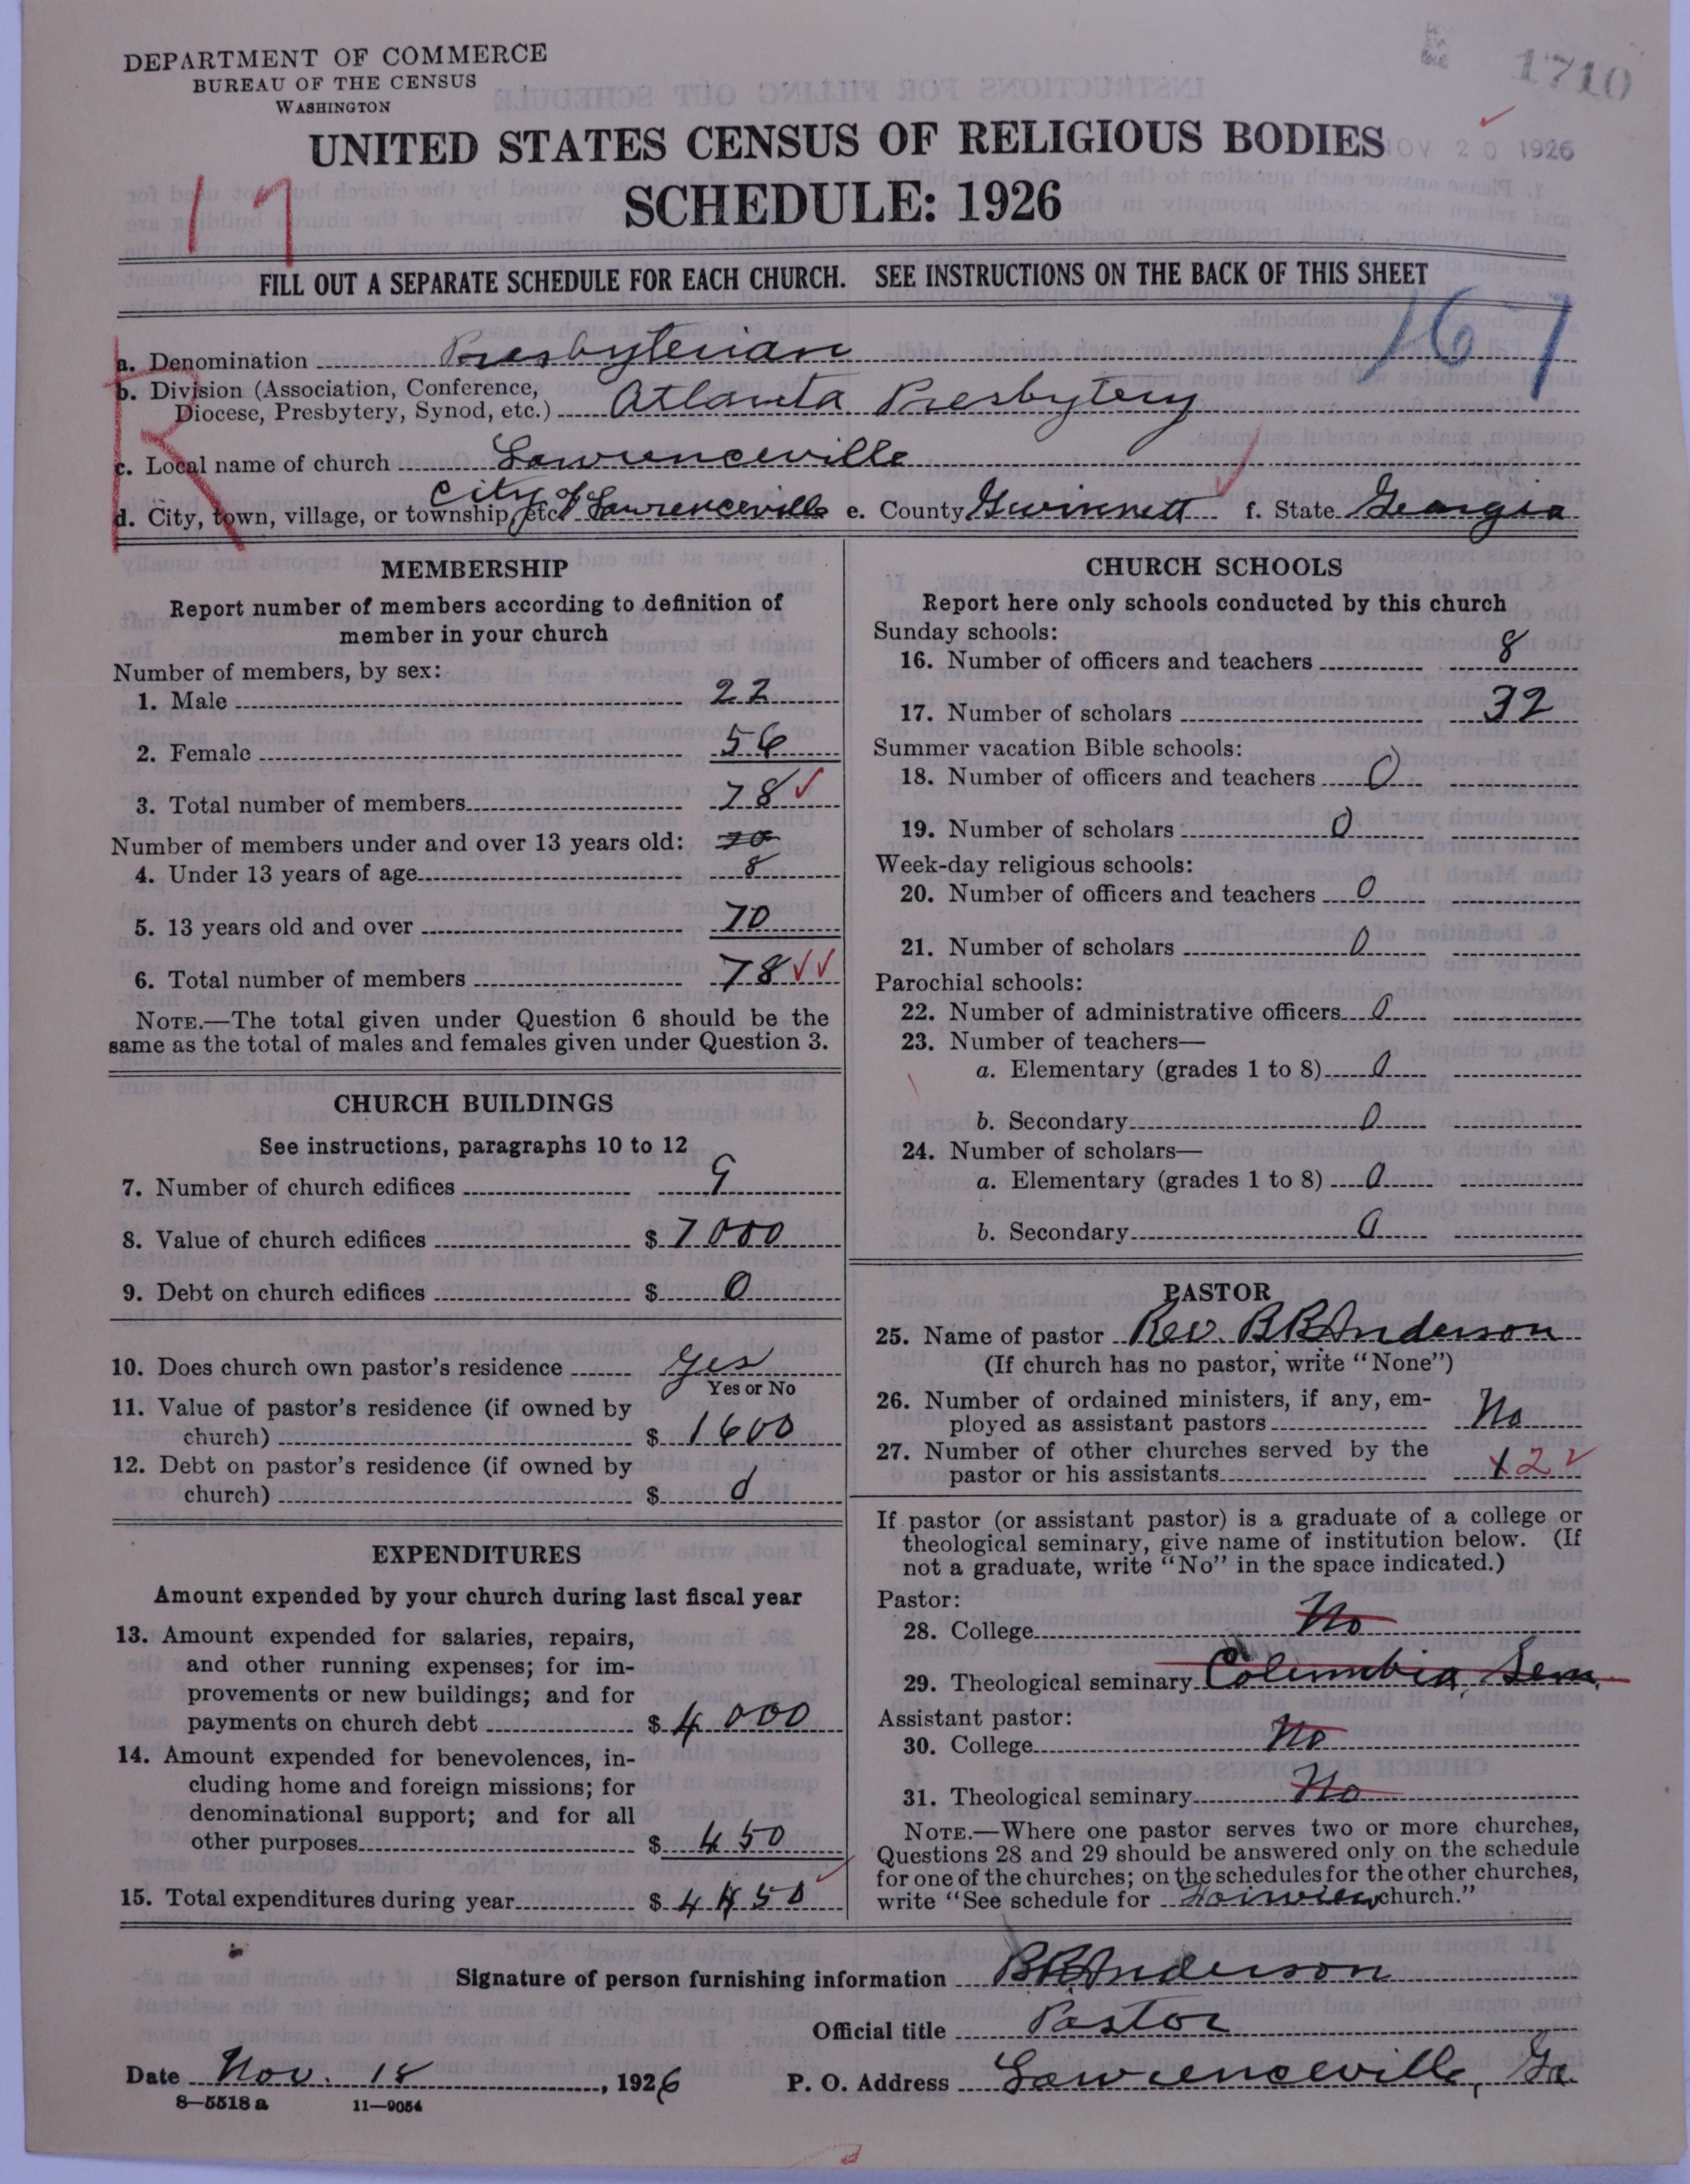 DEPARTMENT OF COMMERCE
BUREAU OF THE CENSUS
WASHINGTON
1710
UNITED STATES CENSUS OF RELIGIOUS BODIES
NOV 20 1926
SCHEDULE: 1926
17
FILL OUT A SEPARATE SCHEDULE FOR EACH CHURCH. SEE INSTRUCTIONS ON THE BACK OF THIS SHEET
167
R
a. Denomination Presbyterian
b. Division (Association, Conference,
Diocese, Presbytery, Synod, etc.) Atlanta Presbytery
c. Local name of church Lawrenceville
d. City, town, village, or township, etc. City of Lawrenceville e. County Gwinnett f. State Georgia
MEMBERSHIP
Report number of members according to definition of
member in your church
Number of members, by sex:
1. Male 22
2. Female 56
3. Total number of members 78 ✓
Number of members under and over 13 years old: 70
4. Under 13 years of age 8
5. 13 years old and over 70
6. Total number of members 78 ✓✓
NOTE.—The total given under Question 6 should be the
same as the total of males and females given under Question 3.
CHURCH BUILDINGS
See instructions, paragraphs 10 to 12
7. Number of church edifices 9
8. Value of church edifices $ 7000
9. Debt on church edifices $ 0
10. Does church own pastor's residence Yes
Yes or No
11. Value of pastor's residence (if owned by
church) $ 1600
12. Debt on pastor's residence (if owned by
church) $ 0
EXPENDITURES
Amount expended by your church during last fiscal year
13. Amount expended for salaries, repairs,
and other running expenses; for im-
provements or new buildings; and for
payments on church debt $ 4000
14. Amount expended for benevolences, in-
cluding home and foreign missions; for
denominational support; and for all
other purposes $ 450
15. Total expenditures during year $ 4450
CHURCH SCHOOLS
Report here only schools conducted by this church
Sunday schools:
16. Number of officers and teachers 8
17. Number of scholars 32
Summer vacation Bible schools:
18. Number of officers and teachers 0
19. Number of scholars 0
Week-day religious schools:
20. Number of officers and teachers 0
21. Number of scholars 0
Parochial schools:
22. Number of administrative officers 0
23. Number of teachers—
a. Elementary (grades 1 to 8) 0
b. Secondary 0
24. Number of scholars—
a. Elementary (grades 1 to 8) 0
b. Secondary 0
PASTOR
25. Name of pastor Rev. B R Anderson
(If church has no pastor, write "None")
26. Number of ordained ministers, if any, em-
ployed as assistant pastors No
27. Number of other churches served by the
pastor or his assistants 2 ✓
If pastor (or assistant pastor) is a graduate of a college or
theological seminary, give name of institution below. (If
not a graduate, write "No" in the space indicated.)
Pastor:
28. College No
29. Theological seminary Columbia Sem.
Assistant pastor:
30. College No
31. Theological seminary No
NOTE.—Where one pastor serves two or more churches,
Questions 28 and 29 should be answered only on the schedule
for one of the churches; on the schedules for the other churches,
write "See schedule for Fairview church."
Signature of person furnishing information B R Anderson
Official title Pastor
Date Nov. 18, 1926 P. O. Address Lawrenceville, Ga.
8—5518 a 11—9054